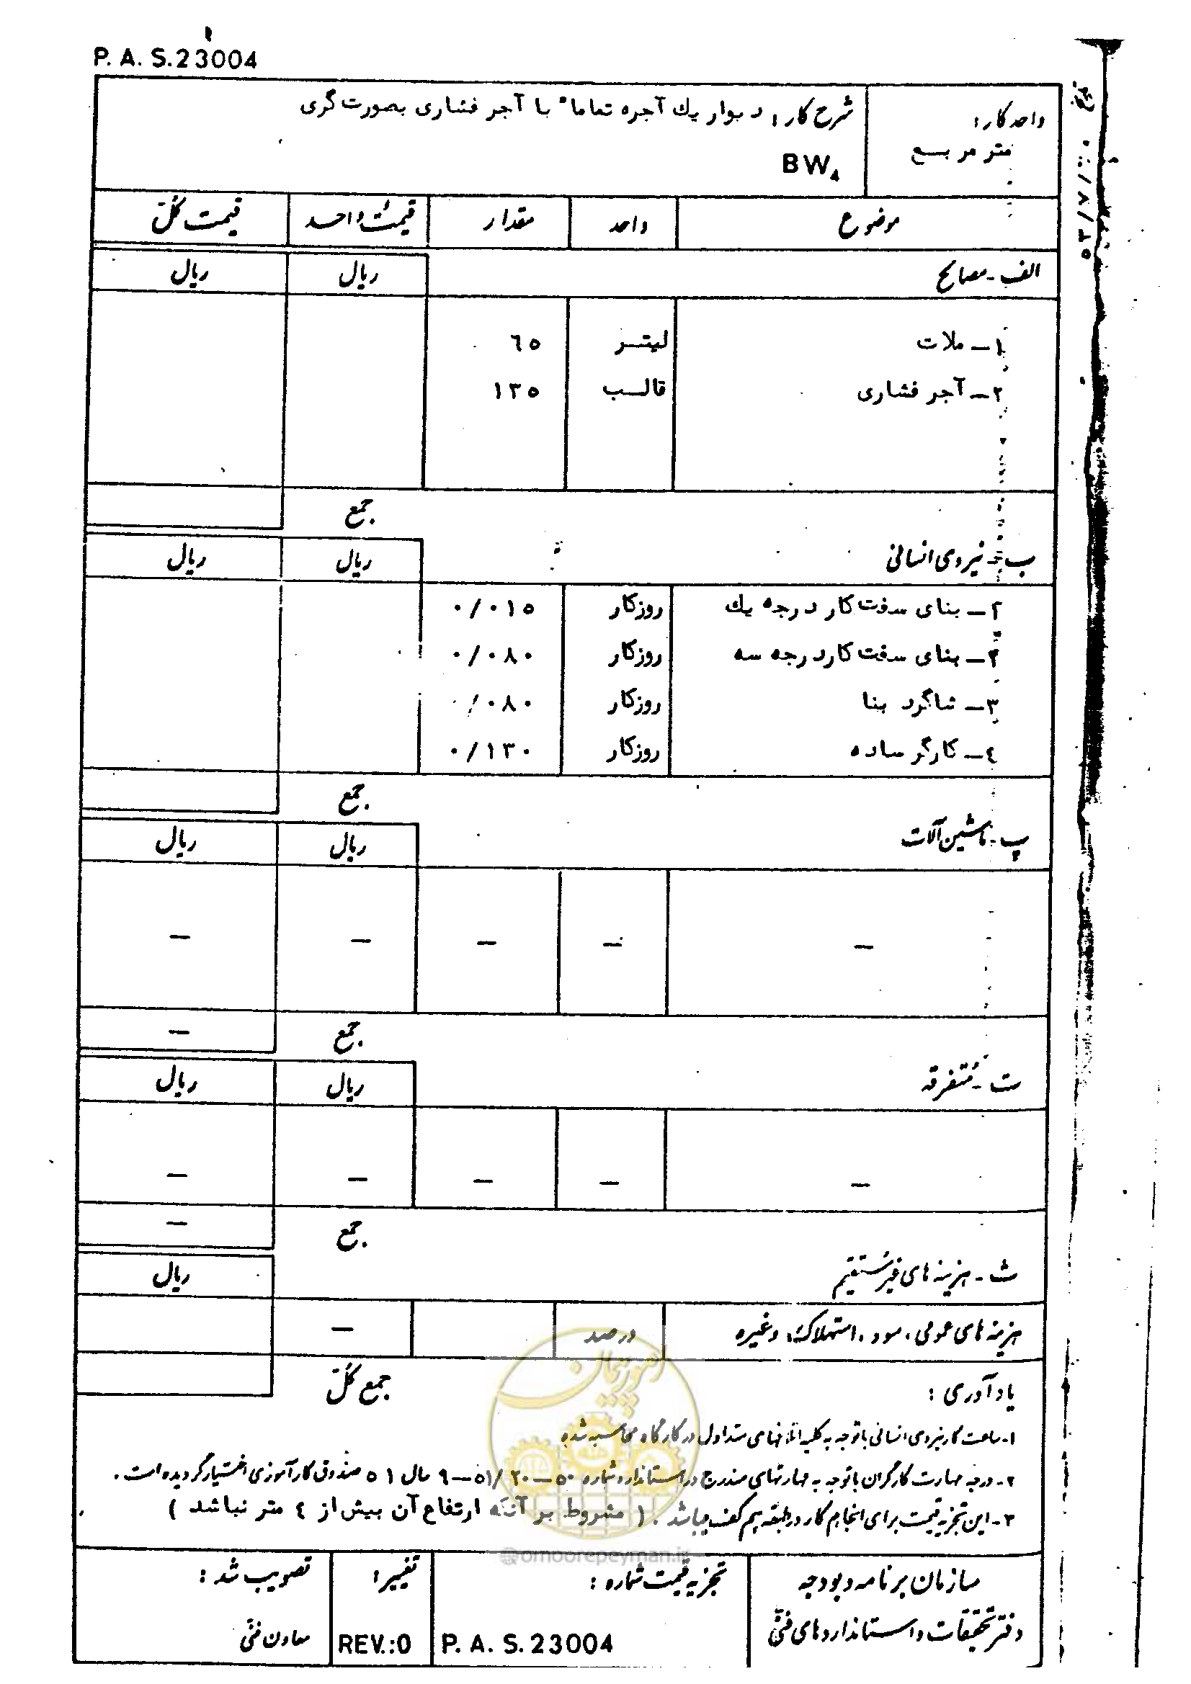 P. A. S.23004
واحد کار :
متر مربع
شرح کار : دیوار یك آجره تماما" با آجر فشاری بصورت گری
BW4
موضوع واحد مقدار قیمت واحد قیمت کل
الف - مصالح ریال ریال
۱ – ملات لیتـر ٦٥
۲ – آجر فشاری قالـب ١٣٥
جمع
ب - نیروی انسانی ریال ریال
۱ – بنای سفت کار درجه یك روزکار ۰/۰۱٥
۲ – بنای سفت کار درجه سه روزکار ۰/۰۸۰
۳ – شاگرد بنا روزکار ۰/۰۸۰
٤ – کارگر ساده روزکار ۰/۱۳۰
جمع
پ - ماشین آلات ریال ریال
– – – – –
جمع –
ت - متفرقه ریال ریال
– – – – –
جمع –
ث - هزینه های غیرمستقیم ریال
هزینه های عمومی ، سود ، استهلاك ، وغیره درصد –
جمع کل
یادآوری :
۱- ساعت کار نیروی انسانی با توجه به کلیه اتلافهای متداول در کارگاه محاسبه شده
۲- درجه مهارت کارگران با توجه به مهارتهای مندرج در استاندارد شماره ۵۰ – ۲۰ /۵۱ – ۹ سال ۵۱ صندوق کارآموزی اختیار گردیده است .
۳- این تجزیه قیمت برای انجام کار در طبقه هم کف میباشد . ( مشروط بر آنکه ارتفاع آن بیش از ٤ متر نباشد )
سازمان برنامه و بودجه
دفتر تحقیقات و استانداردهای فنی
تجزیه قیمت شماره :
P. A. S.23004
تغییر :
REV.:0
تصویب شد :
معاون فنی
امور پیمان
@omoorepeyman.ir